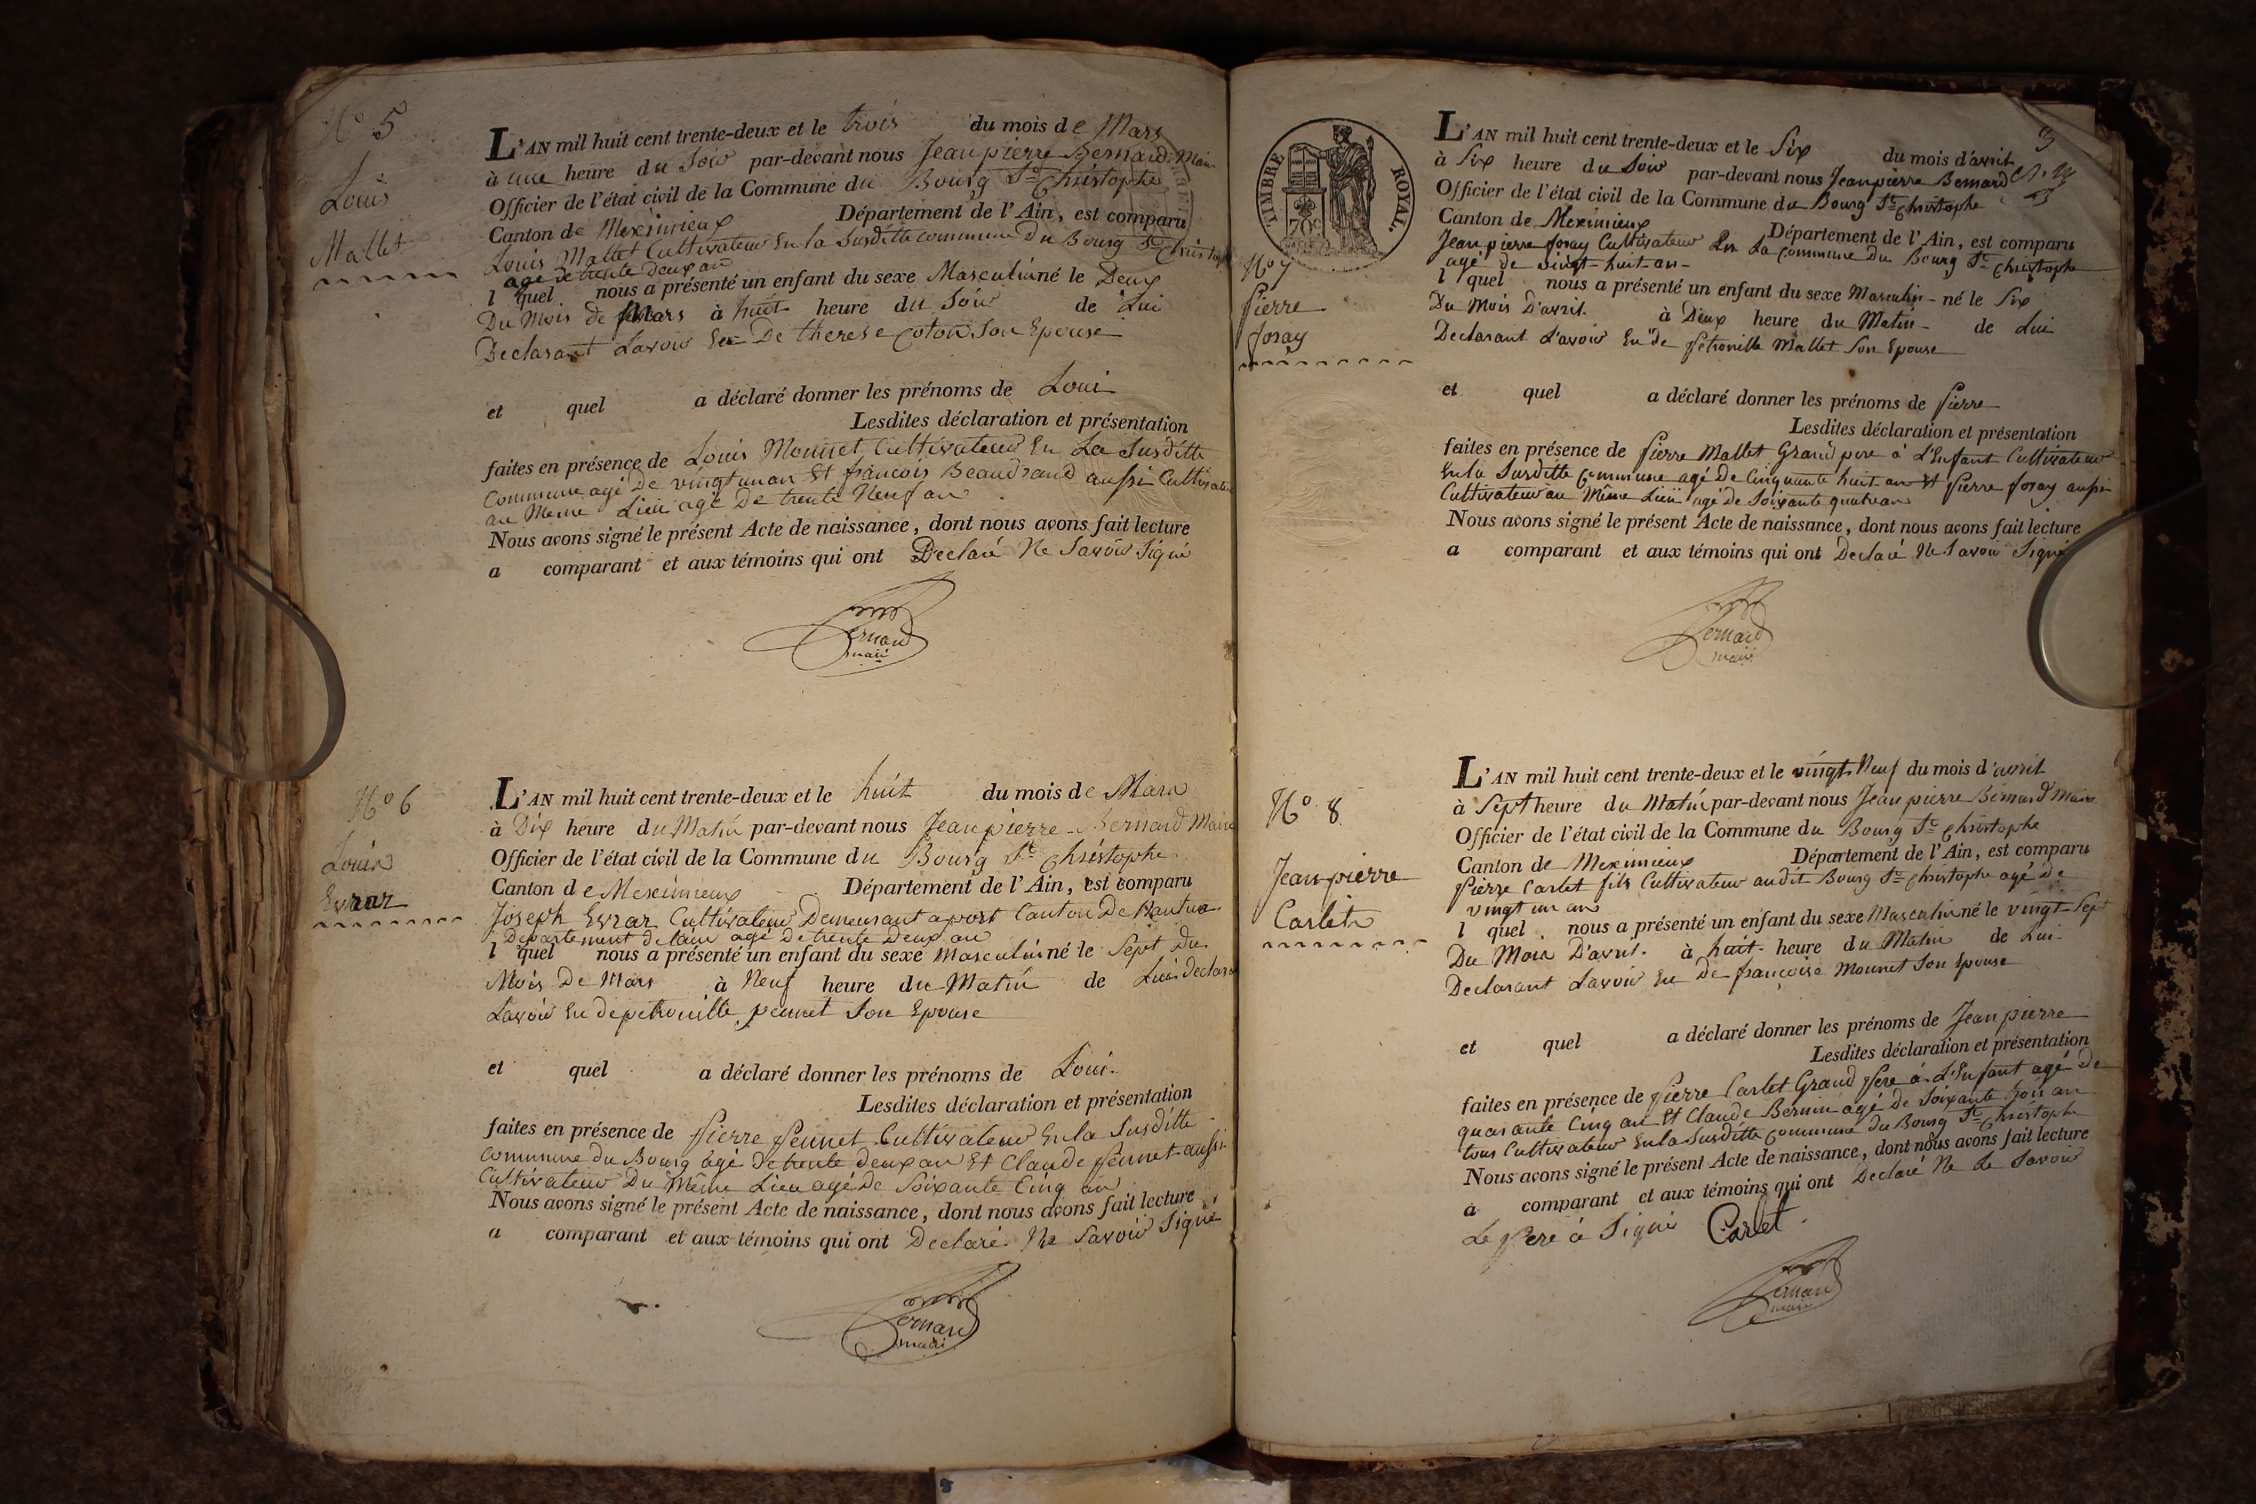 N° 5
Louis
Mallet
L'AN mil huit cent trente-deux et le trois du mois de Mars
à une heure du Soir par-devant nous Jean pierre Bernard Maire
Officier de l'état civil de la Commune du Bourg St Christophe
Canton de Meximieux Département de l'Ain, est comparu
Louis Mallet Cultivateur En la Susditte commune du Bourg St Christophe
agé de trente deux an
l quel nous a présenté un enfant du sexe Masculin né le Deux
Du Mois de Mars à huit heure du Soir de Lui
Declarant Lavoir Eu De therese Coton Son Epouse
et quel a déclaré donner les prénoms de Loui
Lesdites déclaration et présentation
faites en présence de Louis Mounet Cultivateur En La Susditte
Commune agé De vingt un an Et francois Beaudrand aussi Cultivateur
au Meme Lieu agé De trente Neuf an
Nous avons signé le présent Acte de naissance, dont nous avons fait lecture
a comparant et aux témoins qui ont Declaré Ne Savoir Signé
Bernard
maire
N° 6
Louis
Evrar
L'AN mil huit cent trente-deux et le huit du mois de Mars
à Dix heure du Matin par-devant nous Jean pierre Bernard Maire
Officier de l'état civil de la Commune du Bourg St Christophe
Canton de Meximieux Département de l'Ain, est comparu
Joseph Evrar Cultivateur Demeurant a port Canton De Nantua
Departement de lain agé De trente Deux an
l quel nous a présenté un enfant du sexe Masculin né le Sept Du
Mois De Mars à Neuf heure du Matin de Lui declarant
Lavoir Eu de petronille pennet Son Epouse
et quel a déclaré donner les prénoms de Loui
Lesdites déclaration et présentation
faites en présence de Pierre Pennet Cultivateur En la Susditte
commune du Bourg agé De trente deux an Et Claude Pennet aussi
Cultivateur Du Même Lieu agé De Soixante Cinq an
Nous avons signé le présent Acte de naissance, dont nous avons fait lecture
a comparant et aux témoins qui ont Declaré Ne Savoir Signé
Bernard
maire
TIMBRE ROYAL
70c
3
N° 7
Pierre
Joray
L'AN mil huit cent trente-deux et le Six du mois d'avril
à Six heure du Soir par-devant nous Jean pierre Bernard
Officier de l'état civil de la Commune du Bourg St Christophe
Canton de Meximieux Département de l'Ain, est comparu
Jean pierre Joray Cultivateur En La Commune du Bourg St Christophe
agé de vingt-huit-an
l quel nous a présenté un enfant du sexe Masculin né le Six
Du Mois D'avril à Deux heure du Matin de Lui
Declarant L'avoir Eu de Petronille Mallet Son Epouse
et quel a déclaré donner les prénoms de Pierre
Lesdites déclaration et présentation
faites en présence de Pierre Mallet Grand pere a L'Enfant Cultivateur
En la Susditte Commune agé De Cinquante huit an Et Pierre Joray aussi
Cultivateur au Même Lieu agé De Soixante quatre an
Nous avons signé le présent Acte de naissance, dont nous avons fait lecture
a comparant et aux témoins qui ont Declaré Ne Savoir Signé
Bernard
maire
N° 8
Jean pierre
Carlet
L'AN mil huit cent trente-deux et le vingt Neuf du mois d'avril
à Sept heure du Matin par-devant nous Jean pierre Bernard Maire
Officier de l'état civil de la Commune du Bourg St Christophe
Canton de Meximieux Département de l'Ain, est comparu
Pierre Carlet fils Cultivateur audit Bourg St Christophe agé De
vingt un an
l quel nous a présenté un enfant du sexe Masculin né le vingt-Sept
Du Mois D'avril à huit heure du Matin de Lui
Declarant Lavoir Eu De françoise Mounet Son Epouse
et quel a déclaré donner les prénoms de Jean pierre
Lesdites déclaration et présentation
faites en présence de Pierre Carlet Grand Pere à L'Enfant agé De
quarante Cinq an Et Claude Bernin agé de Soixante Trois an
tous Cultivateur En la Susditte Commune du Bourg St Christophe
Nous avons signé le présent Acte de naissance, dont nous avons fait lecture
à comparant et aux témoins qui ont Declaré Ne Le Savoir
Le Pere à Signé Carlet
Bernard
maire